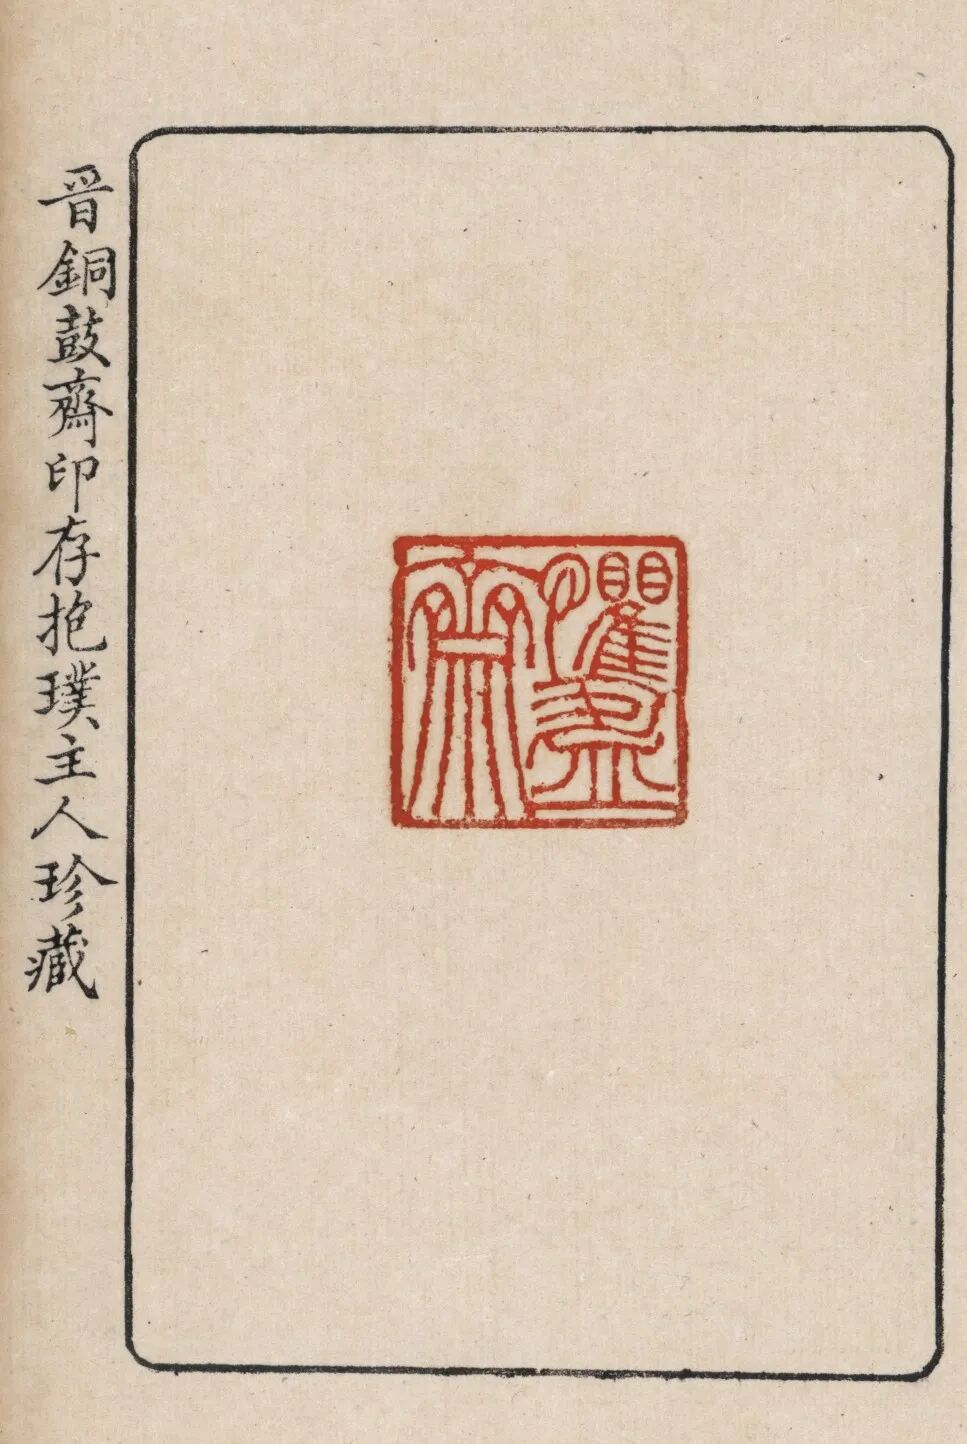 懼盈
齋
晉銅鼓齋印存抱璞主人珍藏